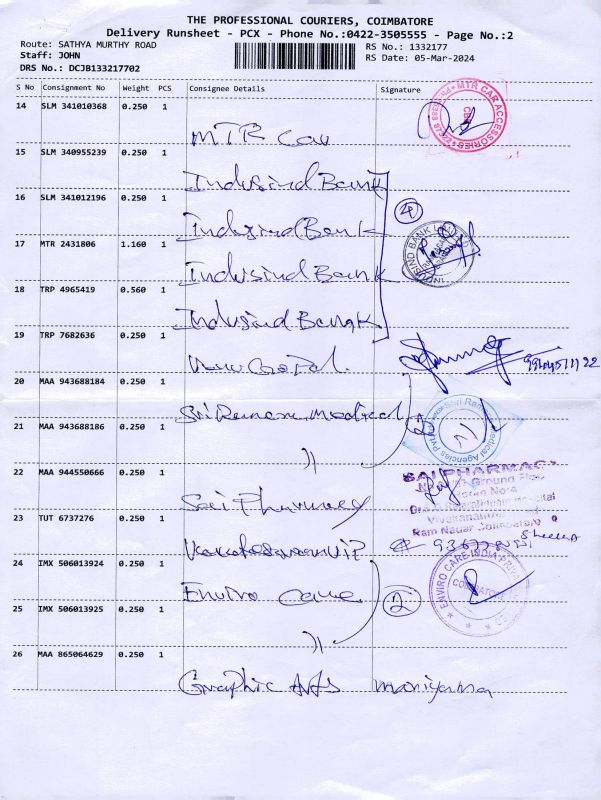 THE PROFESSIONAL COURIERS, COIMBATORE
Delivery Runsheet - PCX - Phone No.:0422-3505555 - Page No.:2
Route: SATHYA MURTHY ROAD
RS No.: 1332177
Staff: JOHN
RS Date: 05-Mar-2024
DRS No.: DCJB133217702
S No Consignment No Weight PCS Consignee Details Signature
14 SLM 341010368 0.250 1
MTR Car
MTR CAR ACCESSORIES
CBE
15 SLM 340955239 0.250 1
Indusind Bank
16 SLM 341012196 0.250 1
Indusind Bank
4
17 MTR 2431806 1.160 1
Indusind Bank
INDUSIND BANK LIMITED
18 TRP 4965419 0.560 1
Indusind Bank
19 TRP 7682636 0.250 1
20 MAA 943688184 0.250 1
Medical
2
Medical Agencies Pvt
21 MAA 943688186 0.250 1
〃
22 MAA 944550666 0.250 1
Sai Pharmacy
SAI PHARMACY
Ground Floor
Hospital
Ram Nagar
23 TUT 6737276 0.250 1
24 IMX 506013924 0.250 1
Enviro Care
2
ENVIRO CARE INDIA PRIVATE
25 IMX 506013925 0.250 1
〃
26 MAA 865064629 0.250 1
Graphic Arts